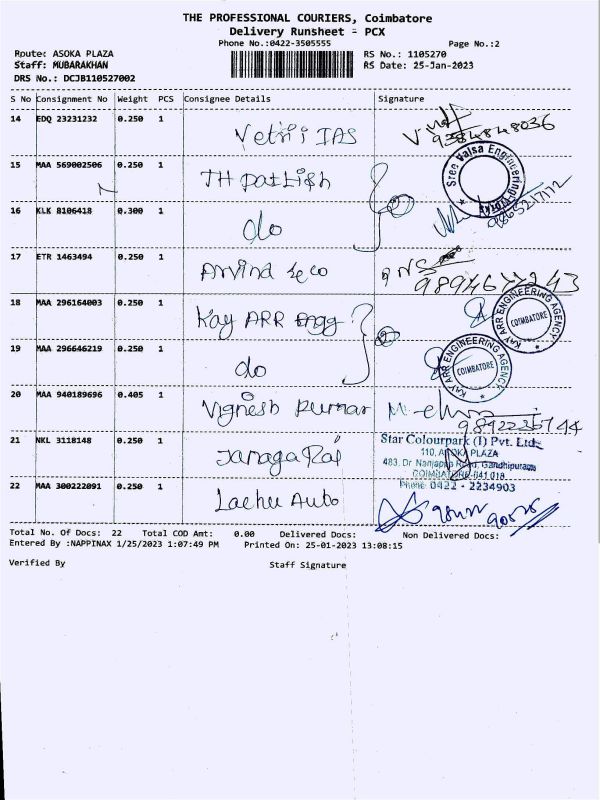 THE PROFESSIONAL COURIERS, Coimbatore
Delivery Runsheet - PCX
Phone No.:0422-3505555
Page No.:2
Route: ASOKA PLAZA
RS No.: 1105270
Staff: MUBARAKHAN
RS Date: 25-Jan-2023
DRS No.: DCJB110527002
S No Consignment No Weight PCS Consignee Details Signature
14 EDQ 23231232 0.250 1 Vetri IAS
9384848036
15 MAA 569002506 0.250 1
Sree Valsa Engineering Works
16 KLK 8106418 0.300 1 do
17 ETR 1463494 0.250 1 Arvind
18 MAA 296164003 0.250 1 Kay ARR Engg
KAY ARR ENGINEERING AGENCY COIMBATORE
19 MAA 296646219 0.250 1 do
KAY ARR ENGINEERING AGENCY COIMBATORE
20 MAA 940189696 0.405 1 Vignesh Kumar
21 NKL 3118148 0.250 1 Janaga Raj
Star Colourpark (I) Pvt. Ltd.
110, ASOKA PLAZA
483, Dr Nanjappa Road, Gandhipuram
COIMBATORE-641 018
Phone: 0422 - 2234903
22 MAA 300222091 0.250 1 Lachu Auto
Total No. Of Docs: 22 Total COD Amt: 0.00 Delivered Docs: Non Delivered Docs:
Entered By :NAPPINAX 1/25/2023 1:07:49 PM Printed On: 25-01-2023 13:08:15
Verified By Staff Signature